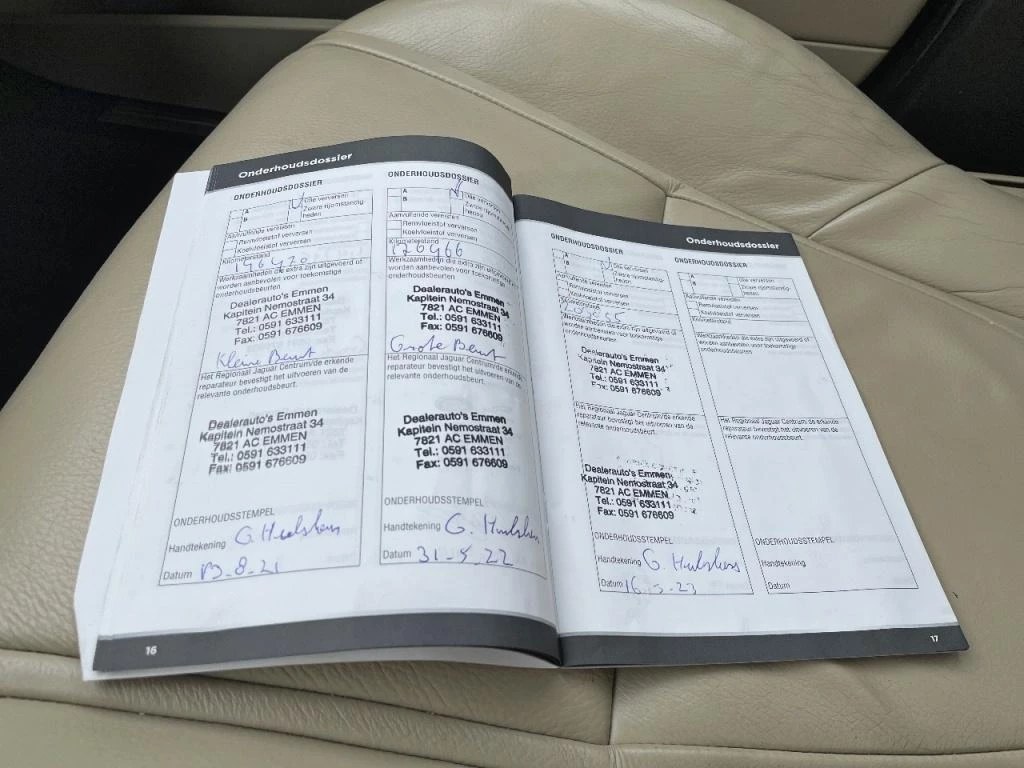 Onderhoudsdossier
ONDERHOUDSDOSSIER
A
B
Olie verversen
Zware rijomstandig-
heden
Aanvullende vereisten
Remvloeistof verversen
Koelvloeistof verversen
Kilometerstand
146420
Werkzaamheden die extra zijn uitgevoerd of
worden aanbevolen voor toekomstige
onderhoudsbeurten
Dealerauto's Emmen
Kapitein Nemostraat 34
7821 AC EMMEN
Tel.: 0591 633111
Fax: 0591 676609
Kleine Beurt
Het Regionaal Jaguar Centrum/de erkende
reparateur bevestigt het uitvoeren van de
relevante onderhoudsbeurt.
Dealerauto's Emmen
Kapitein Nemostraat 34
7821 AC EMMEN
Tel.: 0591 633111
Fax: 0591 676609
ONDERHOUDSSTEMPEL
Handtekening
Datum 13-8-21
16
ONDERHOUDSDOSSIER
A
B
Olie verversen
Zware rijomstandig-
Aanvullende vereisten
Remvloeistof verversen
Koelvloeistof verversen
Kilometerstand
176466
Werkzaamheden die extra zijn uitgevoerd of
worden aanbevolen voor toekomstige
onderhoudsbeurten
Dealerauto's Emmen
Kapitein Nemostraat 34
7821 AC EMMEN
Tel.: 0591 633111
Fax: 0591 676609
Grote Beurt
Het Regionaal Jaguar Centrum/de erkende
reparateur bevestigt het uitvoeren van de
relevante onderhoudsbeurt.
Dealerauto's Emmen
Kapitein Nemostraat 34
7821 AC EMMEN
Tel.: 0591 633111
Fax: 0591 676609
ONDERHOUDSSTEMPEL
Handtekening
Datum 31-5-22
Onderhoudsdossier
ONDERHOUDSDOSSIER
A
B
Olie verversen
Zware rijomstandig-
heden
Aanvullende vereisten
Remvloeistof verversen
Koelvloeistof verversen
Werkzaamheden die extra zijn uitgevoerd of
worden aanbevolen voor toekomstige
onderhoudsbeurten
Dealerauto's Emmen
Kapitein Nemostraat 34
7821 AC EMMEN
Tel.: 0591 633111
Fax: 0591 676609
Het Regionaal Jaguar Centrum/de erkende
reparateur bevestigt het uitvoeren van de
relevante onderhoudsbeurt.
Dealerauto's Emmen
Kapitein Nemostraat 34
7821 AC EMMEN
Tel.: 0591 633111
Fax: 0591 676609
ONDERHOUDSSTEMPEL
Handtekening
Datum 16-5-23
ONDERHOUDSDOSSIER
A
B
Olie verversen
Zware rijomstandig-
heden
Aanvullende vereisten
Remvloeistof verversen
Koelvloeistof verversen
Kilometerstand
Werkzaamheden die extra zijn uitgevoerd of
worden aanbevolen voor toekomstige
onderhoudsbeurten
Het Regionaal Jaguar Centrum/de erkende
reparateur bevestigt het uitvoeren van de
relevante onderhoudsbeurt.
ONDERHOUDSSTEMPEL
Handtekening
Datum
17